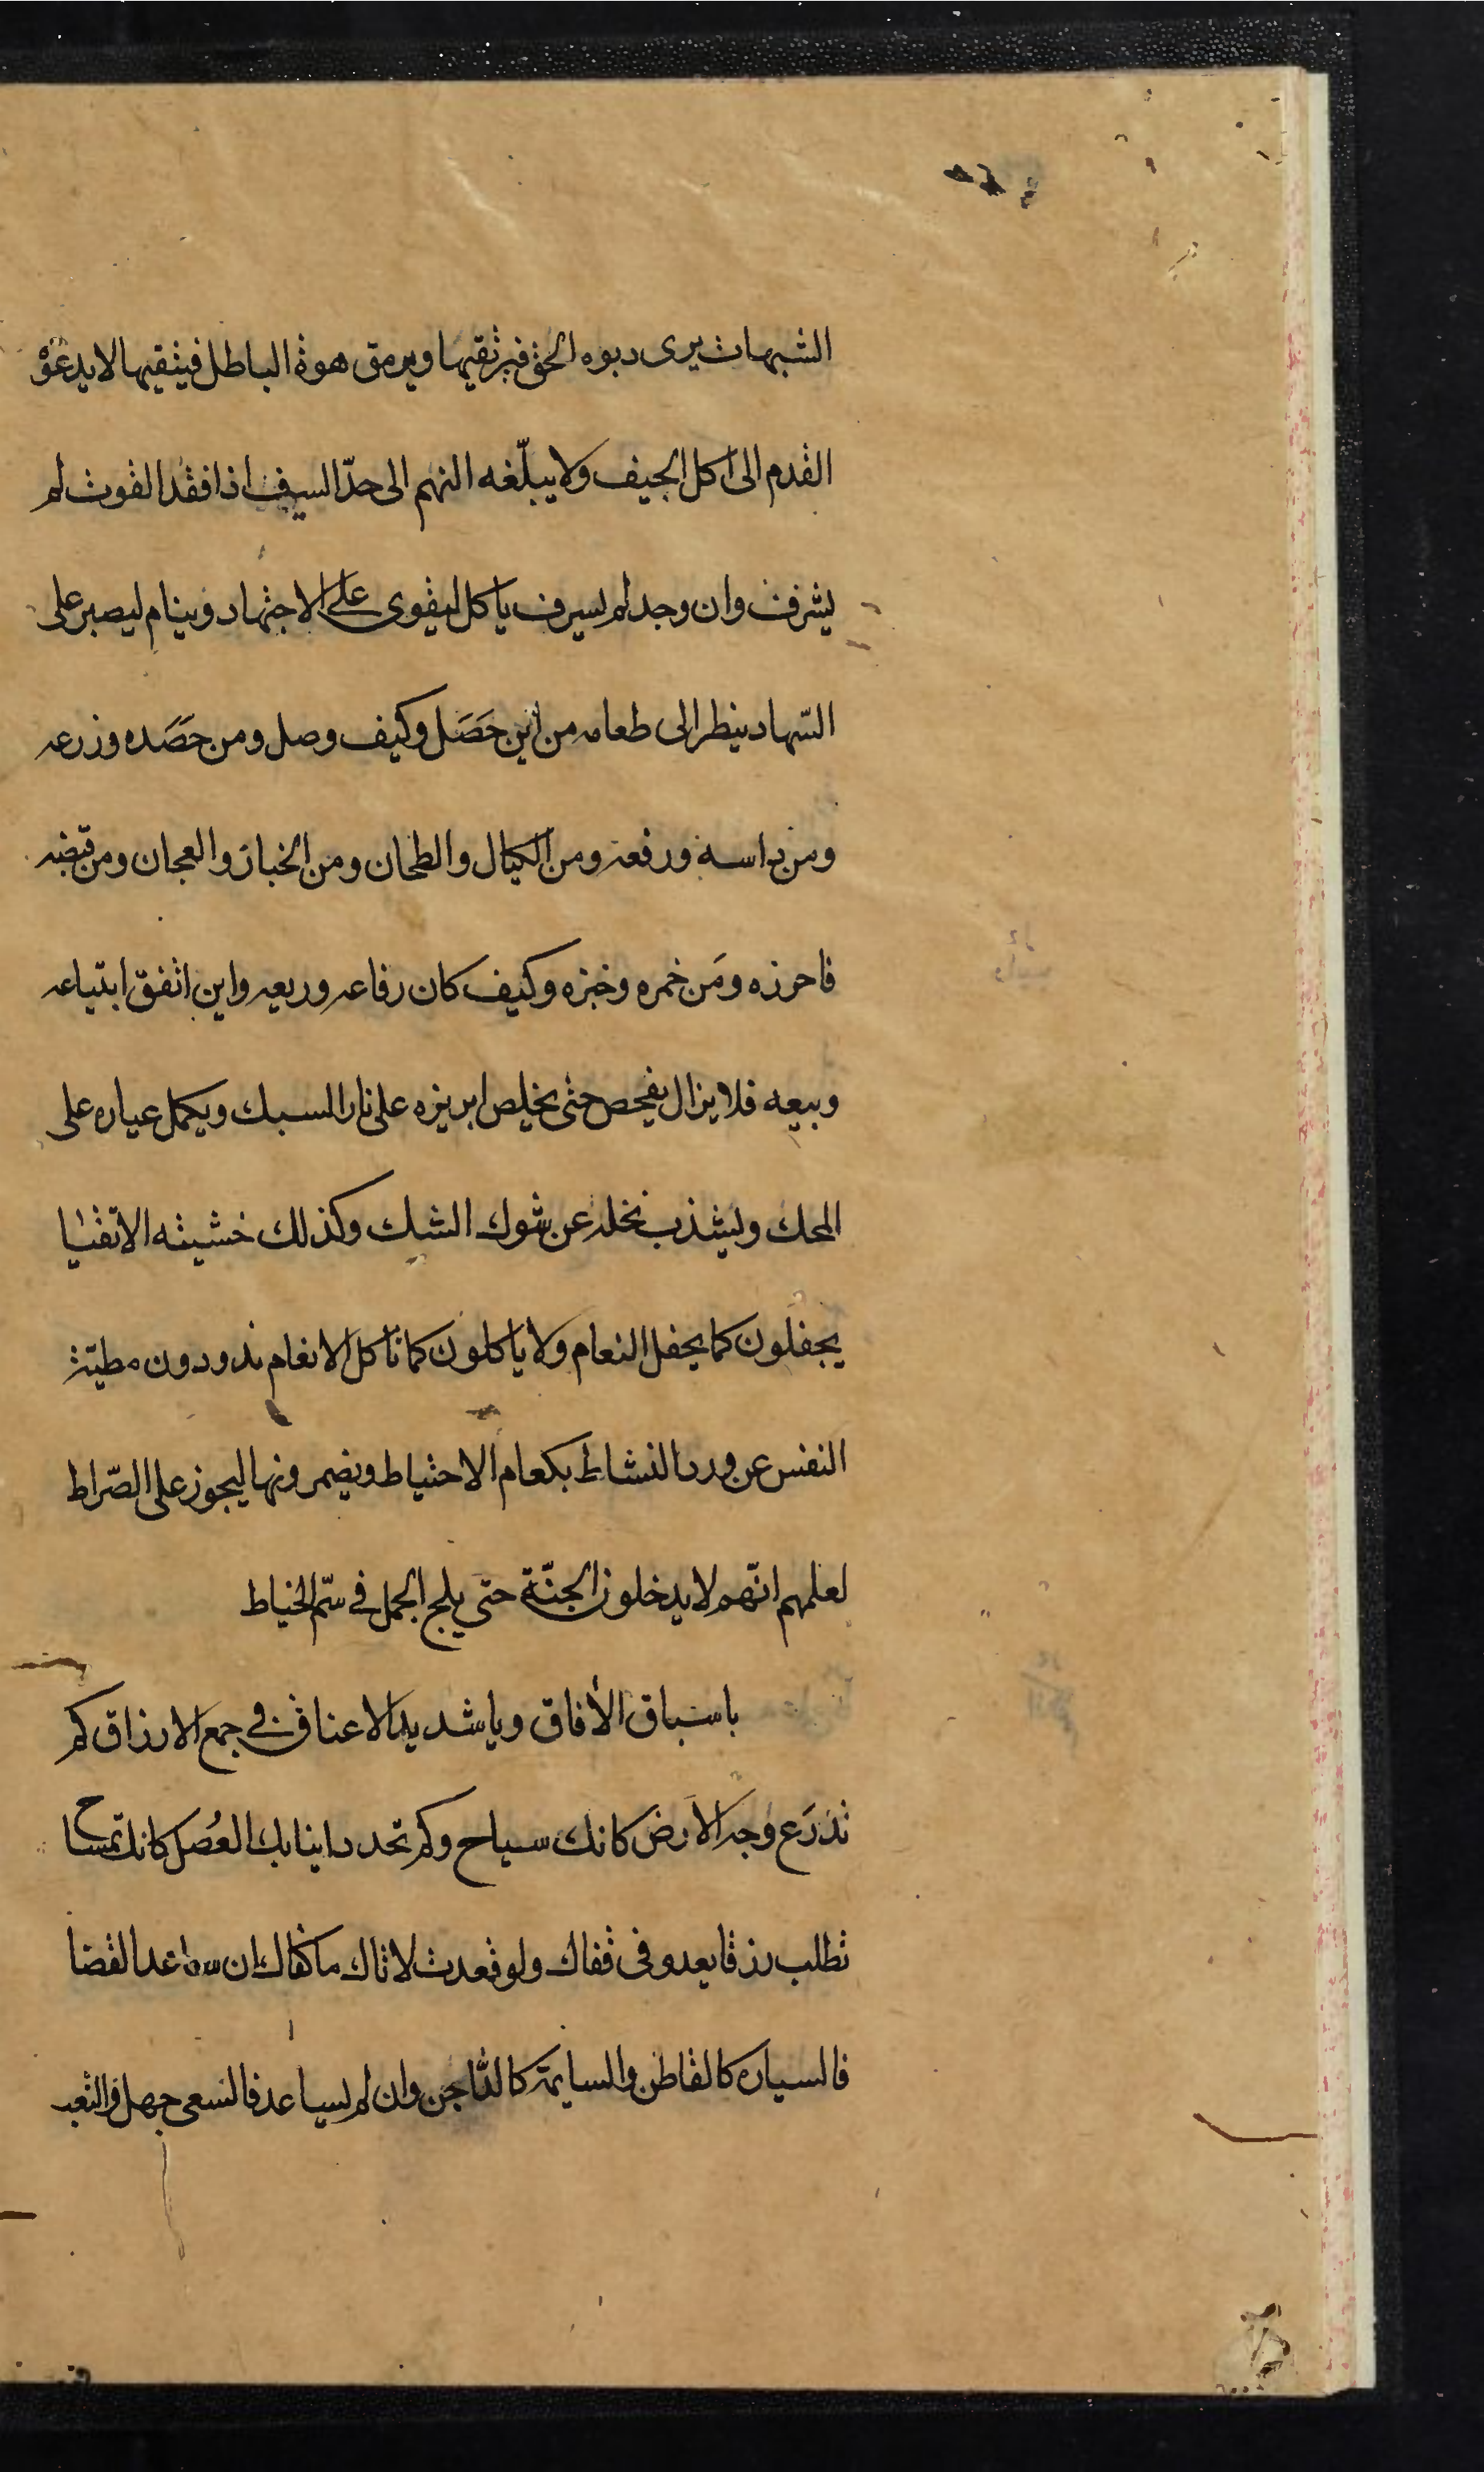 الشبهات يرى ربوه الحق فيرتقيها ويرمق هوة الباطل فيتقيها لا يدعوه
القدم الى اكل الجيف ولا يبلّغه النهم الى حدّ السيف اذا فقد القوت لم
يشرف وان وجد لم يسرف ياكل ليقوى على الاجتهاد وينام ليصبر على
السّهاد ينظر الى طعامه من اين حَصَل وكيف وصل ومن حَصَده وزرعه
ومن داسه ورفعه ومن الكيال والطحان ومن الخباز والعجان ومن قبّضه
فاحرزه ومَن خمره وخبزه وكيف كان رفاعه وريعه واين اتفق ابتياعه
وبيعه فلا يزال يفحص حتى يخلص ابريزه على نار السبك ويكمل عياره على
المحك ويشذب نخله عن شوك الشك وكذلك خشيته الاتقيا
يجفلون كما يجفل النعام ولا ياكلون كما تاكل الانعام يذودون مطيّة
النفس عن ورد النشاط بكعام الاحتياط ويضمرونها ليجوز على الصّراط
لعلمهم انّهم لا يدخلون الجنّة حتى يلج الجمل في سّم الخياط
يا سباق الأفاق ويا شديد الاعناق في جمع الارزاق كم
تذرَع وجه الارض كانك سياح وكم تحدد انيابك العُصل كانك تمساح
تطلب رزقا يعدو في قفاك ولو قعدت لاتاك ما كفاك ان ساعد القضا
فالسياره كالقاطن والسايمة كالداجن وان لم يساعد فالسعى جهل والتعب